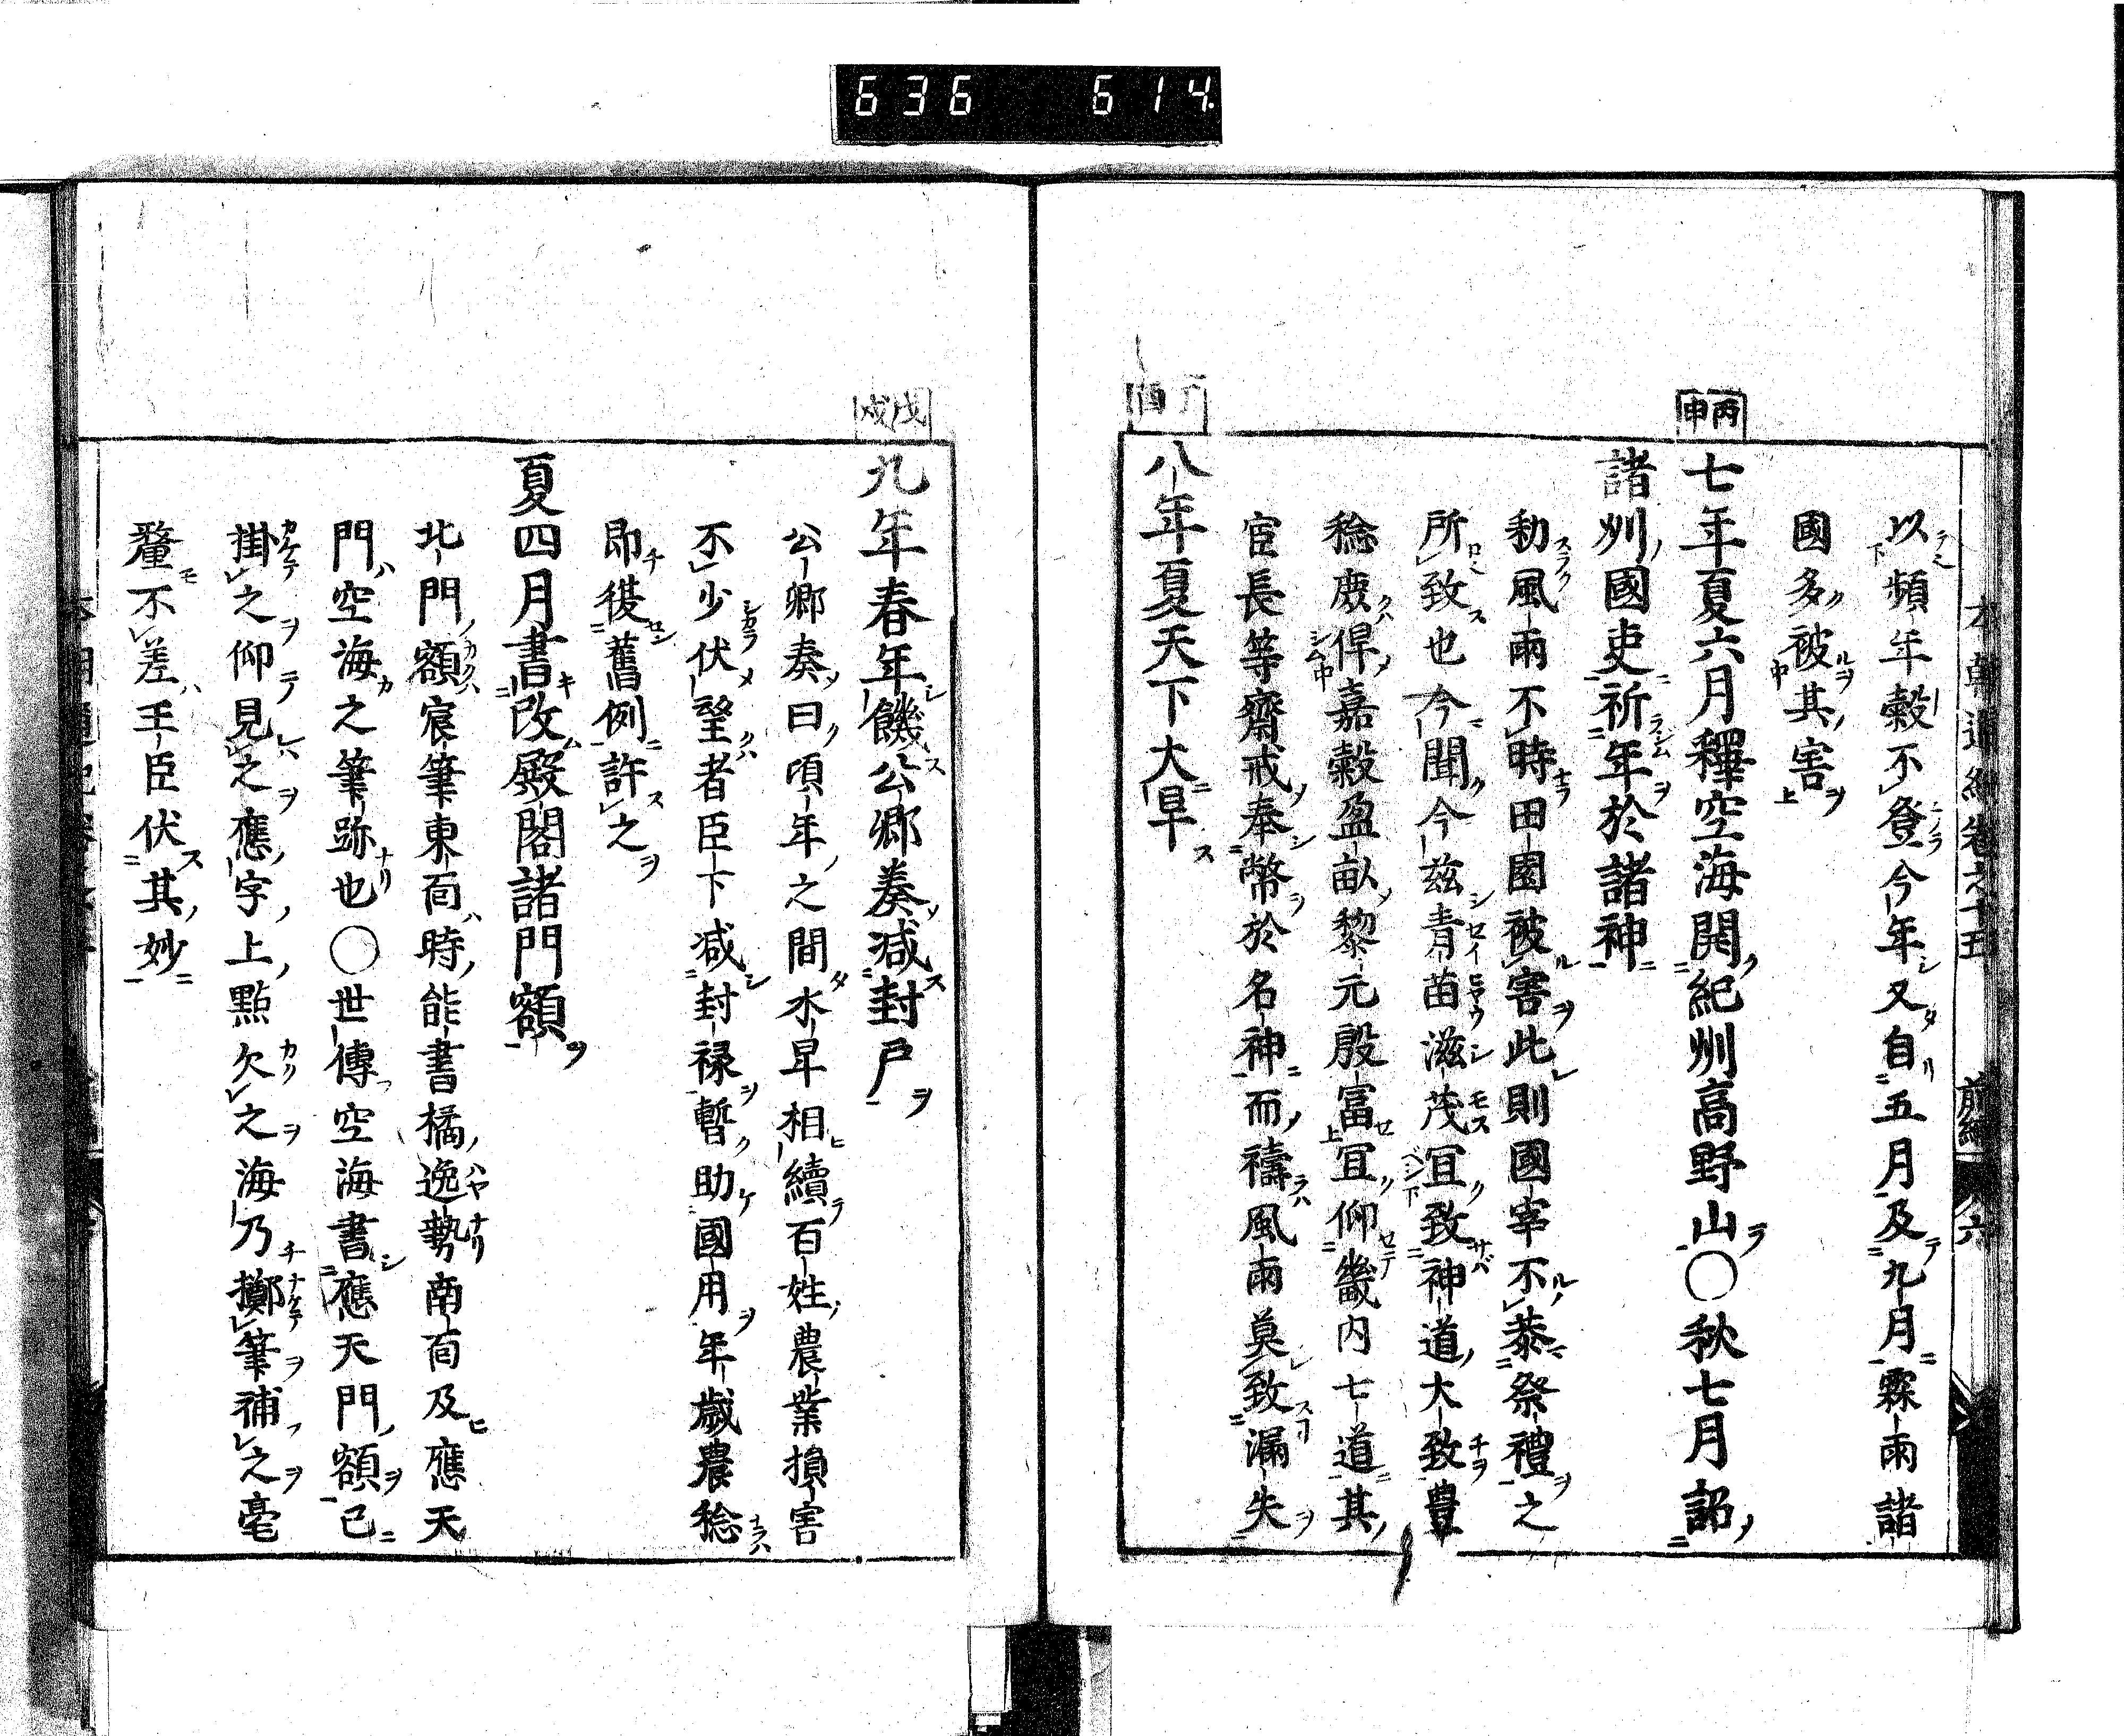 636 614
本朝通紀卷之十五 前編 六
以頻年穀不登今年又自五月及九月霖雨諸
國多被其害
丙申
七年夏六月釋空海開紀州高野山〇秋七月詔
諸州國吏祈年於諸神
勅風雨不時田園被害此則國宰不恭祭禮之
所致也今聞今玆青苗滋茂宜致神道大致豊
稔庻俾嘉穀盈畝黎元殷富宜仰畿内七道其
官長等齋戒奉幣於名神而禱風雨莫致漏失
丁酉
八年夏天下大旱
戊戌
九年春年饑公卿奏減封戸
公卿奏曰頃年之間水旱相續百姓農業損害
不少伏望者臣下减封禄暫助國用年歲農稔
即復舊例許之
夏四月書改殿閣諸門額
北門額宸筆東面時能書橘逸勢南面及應天
門空海之筆跡也〇世傳空海書應天門額已
掛之仰見之應字上點欠之海乃擲筆補之毫
釐不差王臣伏其妙